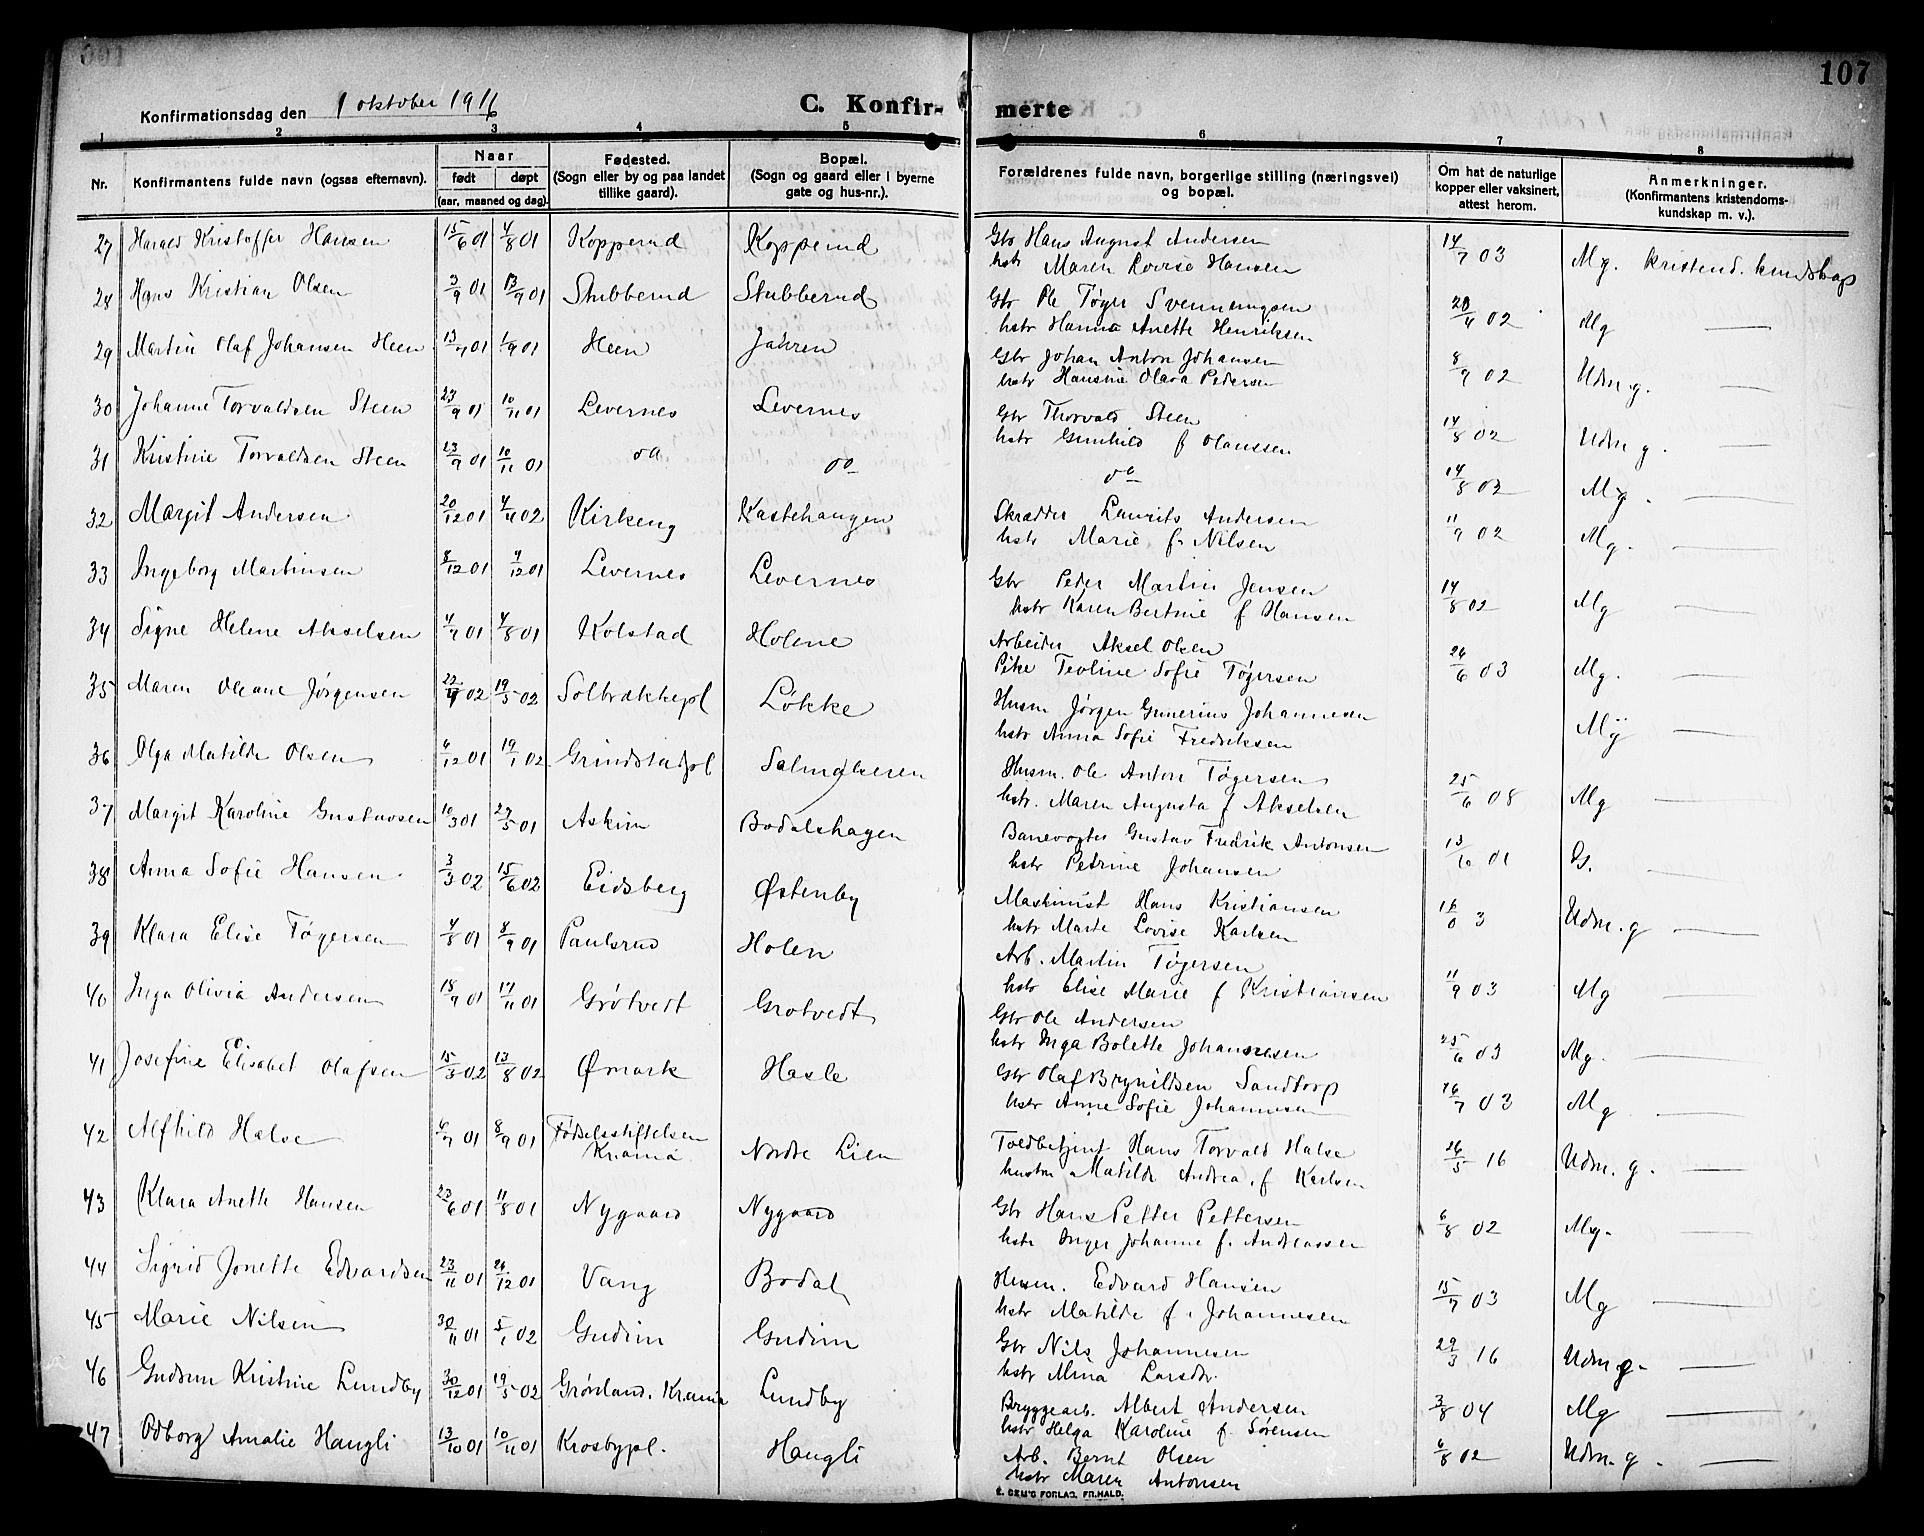 107
Konfirmationsdag den 1 oktober 1916
C. Konfir- merte
1 2 3 4 5 6 7 8
Nr. Konfirmantens fulde navn (ogsaa efternavn). Naar født døpt (aar, maaned og dag). Fødested. (Sogn eller by og paa landet tillike gaard). Bopæl. (Sogn og gaard eller i byerne gate og hus-nr.). Forældrenes fulde navn, borgerlige stilling (næringsvei) og bopæl. Om hat de naturlige kopper eller vaksinert, attest herom. Anmerkninger. (Konfirmantens kristendoms-kundskap m. v.).
27 Harald Kristoffer Hansen 15/6 01 4/8 01 Kopperud Kopperud Gbr Hans August Andersen 14/7 03 Mg. kristend. kundskap
hstr Maren Lovise Hansen
28 Hans Kristian Olsen 3/9 01 13/9 01 Stubberud Stubberud Gbr Ole Tøger Svenningsen 20/4 02 Mg —
hstr Hanna Anette Henriksen
29 Martin Olaf Johansen Heen 13/7 01 1/9 01 Heen Jahren Gbr Johan Anton Johansen 8/9 02 Udm. g. —
hstr Hansine Olava Pedersen
30 Johanne Torvaldsen Steen 23/9 01 10/11 01 Levernes Levernes Gbr Thorvald Steen 14/8 02 Udm g. —
hstr Gunhild f Olaussen
31 Kristine Torvaldsen Steen 23/9 01 10/11 01 do do do 14/8 02 Mg. —
32 Margit Andersen 20/12 01 4/4 02 Kirkeng Kastehaugen Skrædder Laurits Andersen 11/9 02 Mg. —
hstr Marie f. Nilsen
33 Ingeborg Martinsen 8/12 01 9/12 01 Levernes Levernes Gbr Peder Martin Jensen 14/8 02 Mg —
hstr Karen Bertine f Hansen
34 Signe Helene Akselsen 4/7 01 4/8 01 Kolstad Holene Arbeider Aksel Olsen 26/6 03 Mg. —
Pike Teoline Sofie Tøgersen
35 Maren Oleane Jørgensen 22/4 02 19/5 02 Solbrækkepl Løkke Husm Jørgen Gunerius Johannesen Mg —
hstr Anna Sofie Fredriksen
36 Olga Matilde Olsen 4/12 01 19/1 02 Grindstadpl Husm. Ole Anton Tøgersen 25/6 08 Mg —
hstr. Maren Augusta f Akselsen
37 Margit Karoline Gustavsen 10/3 01 27/5 01 Askim Bodalshagen Banevogter Gustav Fredrik Antonsen 13/6 01 G. —
hstr Petrine Johansen
38 Anna Sofie Hansen 3/3 02 15/6 02 Eidsberg Østenby Maskinist Hans Kristiansen 16/8 3 Udm. g —
hstr Marte Lovise Karlsen
39 Klara Elise Tøgersen 4/8 01 8/9 01 Paulsrud Holen Arb. Martin Tøgersen 11/9 03 Mg —
hstr Elise Marie f Kristiansen
40 Inga Olivia Andersen 18/9 01 17/11 01 Grøtvedt Grøtvedt Gbr Ole Andersen 25/6 03 Mg. —
hstr Inga Bolette Johannesen
41 Josefine Elisabet Olafsen 15/3 02 13/8 02 Ømark Hasle Gbr Olaf Brynildsen Sandtorp 16/7 03 Mg —
hstr Anne Sofie Johannesen
42 Alfhild Halse 6/7 01 8/9 01 Fødselsstiftelsen Krania Nordre Lien Toldbetjent Hans Torvald Halse 26/5 16 Udm. g. —
hustru Matilde Andrea f Karlsen
43 Klara Anette Hansen 23/6 01 11/8 01 Nygaard Nygaard Gbr Hans Petter Pettersen 6/8 02 Mg. —
hstr Inger Johanne f. Andreassen
44 Sigrid Jonette Edvardsen 23/11 01 26/12 01 Vang Bodal Husm. Edvard Hansen 15/7 03 Mg —
hstr Matilde f. Johannesen
45 Marie Nilsen 30/11 01 5/1 02 Gudim Gudim Gbr Nils Johannesen 29/3 16 Udm g. —
hstr Mina Larsdr.
46 Gudrun Kristine Lundby 30/12 01 19/5 02 Grønland. Krania Lundby Bryggearb. Albert Andersen 3/8 04 Mg —
hstr Helga Karoline f. Sørensen
47 Odborg Amalie Haugli 13/10 01 10/11 01 Krosbypl. Haugli Arb. Bernt Olsen 6/8 02 Udm. g. —
hstr Maren Antonsen
E. SEM'S FORLAG, FR.HALD.